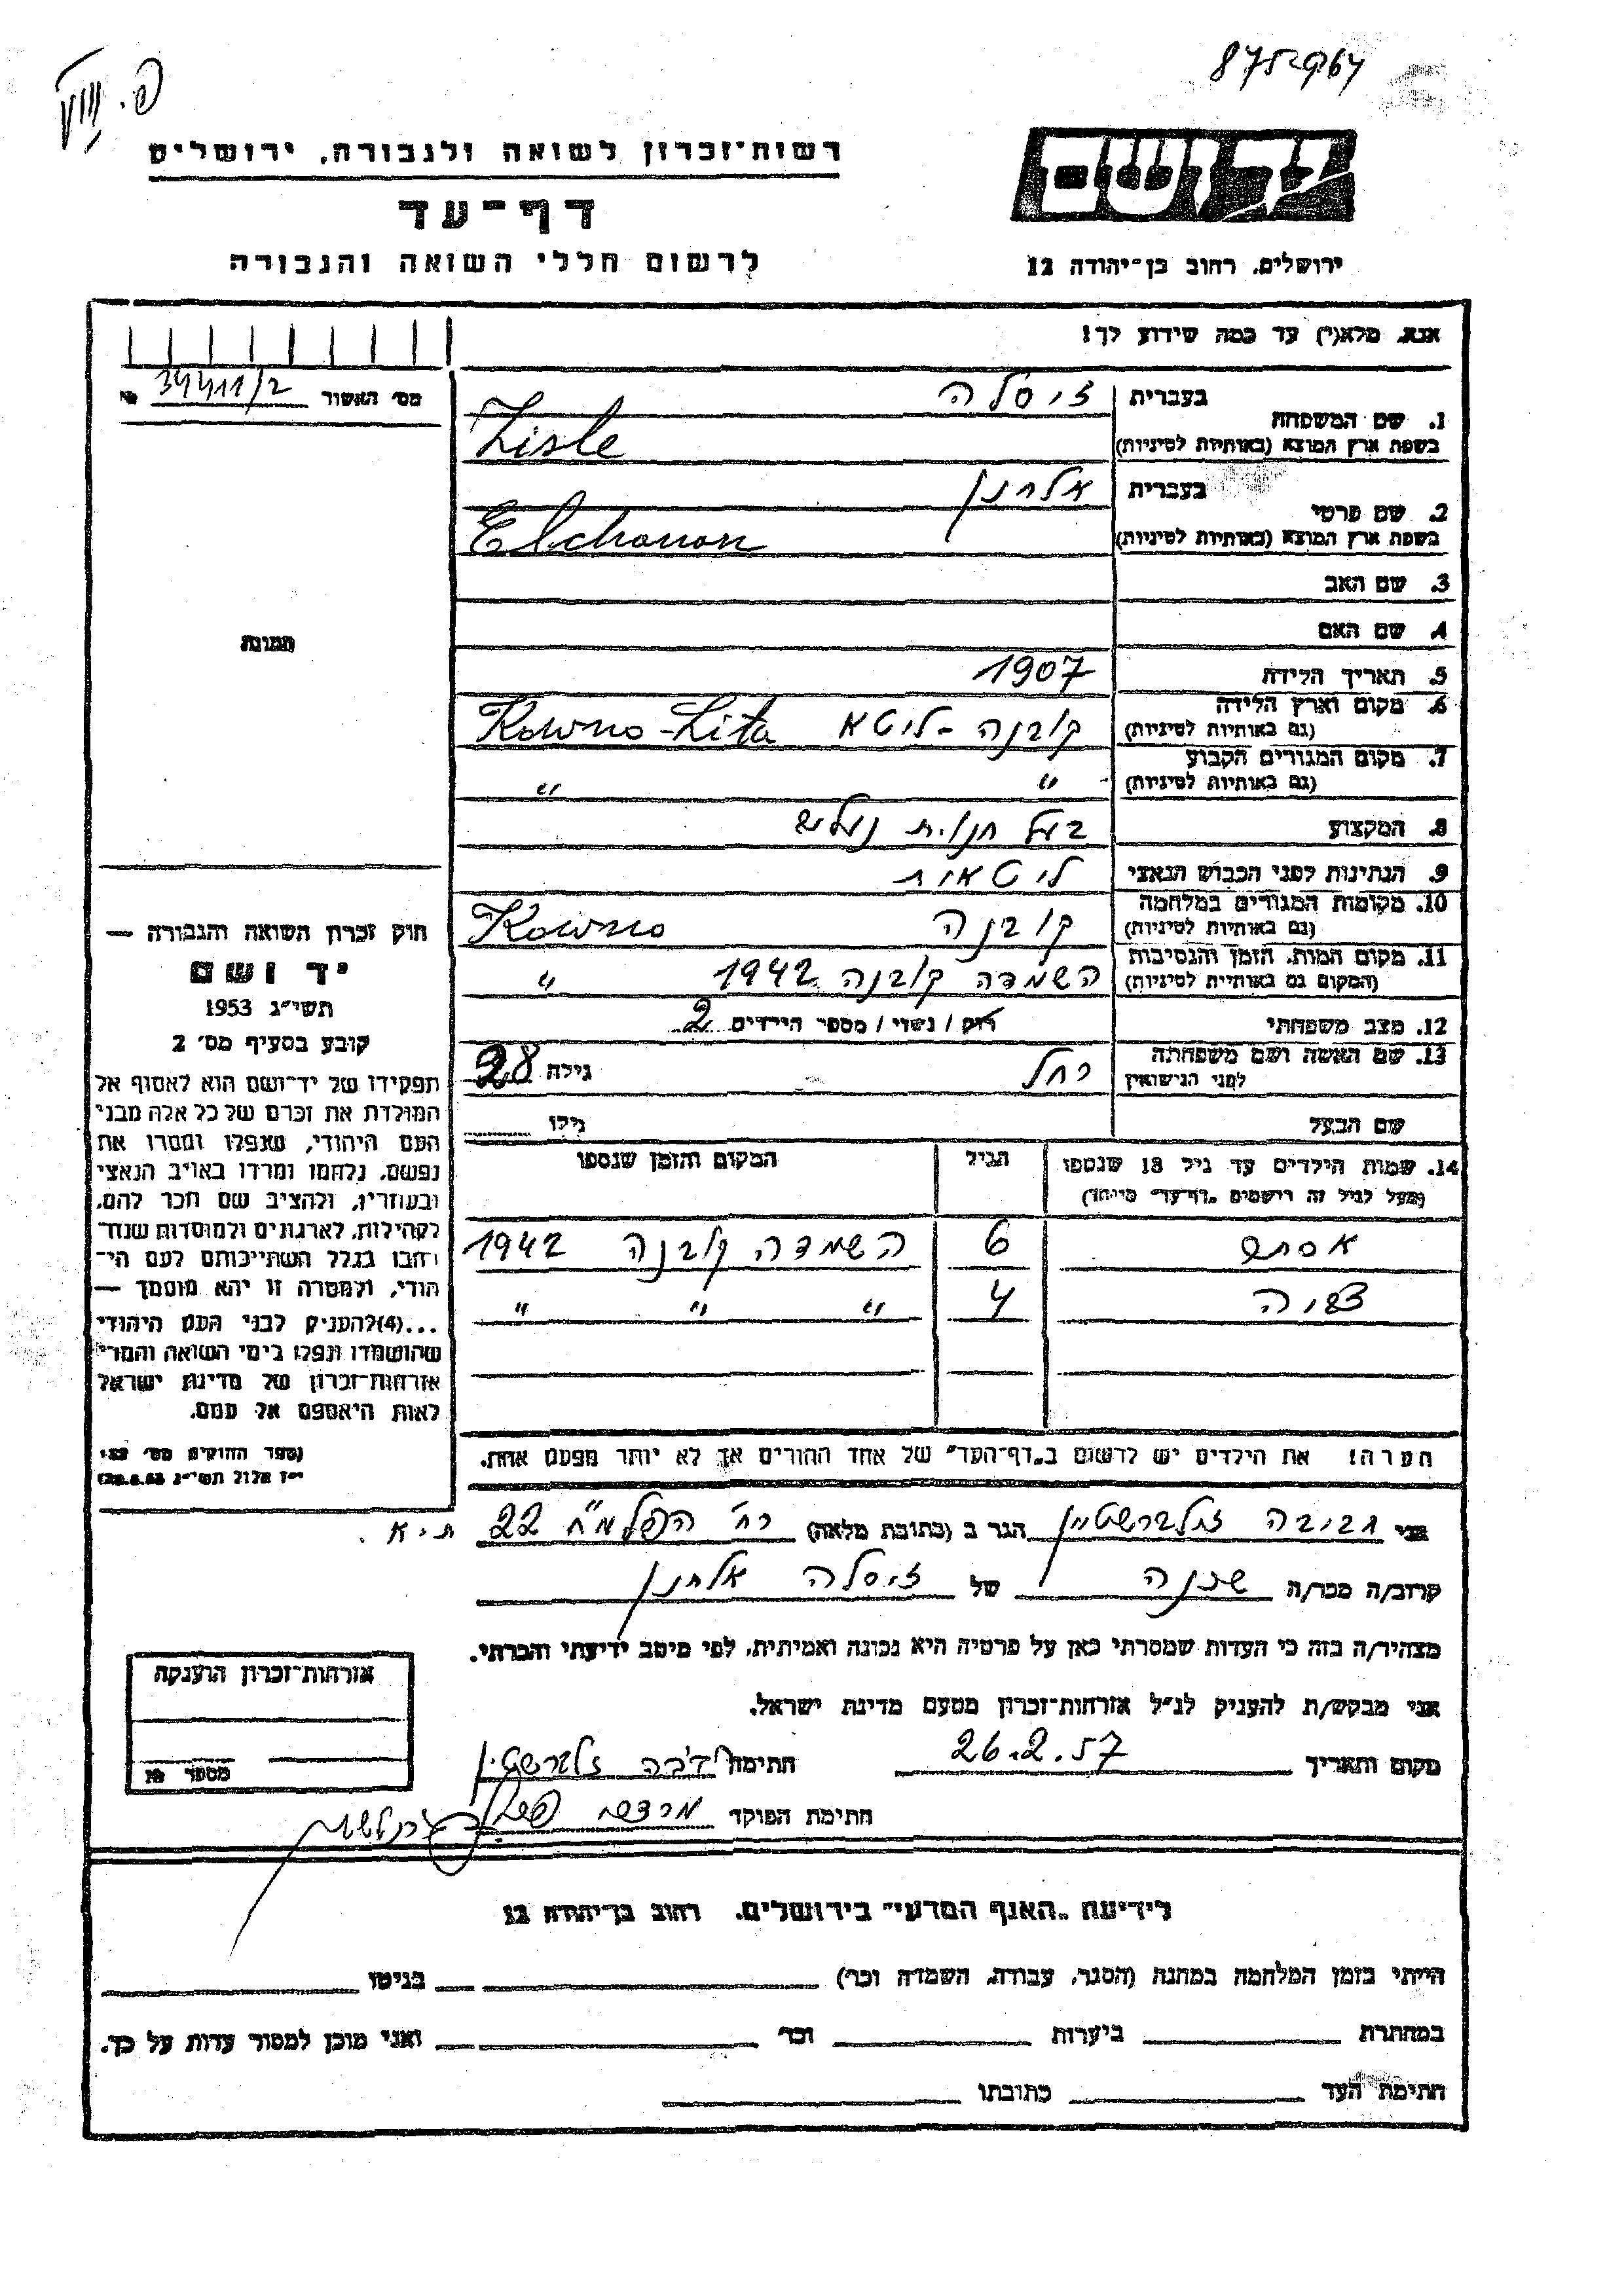 875067
רשות־זכרון לשואה ולגבורה, ירושלים
דף־עד
לרשום חללי השואה והגבורה
יד ושם
ירושלים, רחוב בן־יהודה 12
אנא, מלא(י) עד כמה שידוע לך!
מס׳ האשור 34411/2 №
תמונה
1. שם המשפחה בעברית זיסלה
בשפת ארץ המוצא (באותיות לטיניות) Zisle
2. שם פרטי בעברית אלחנן
בשפת ארץ המוצא (באותיות לטיניות) Elchonon
3. שם האב
4. שם האם
5. תאריך הלידה 1907
6. מקום וארץ הלידה (גם באותיות לטיניות) קובנה - ליטא Kowno-Lita
7. מקום המגורים הקבוע (גם באותיות לטיניות) " "
8. המקצוע בעל חנות
9. הנתינות לפני הכבוש הנאצי ליטאית
10. מקומות המגורים במלחמה (גם באותיות לטיניות) קובנה Kowno
11. מקום המות, הזמן והנסיבות (המקום גם באותיות לטיניות) השמדה קובנה 1942 "
12. מצב משפחתי רוק / נשוי / מספר הילדים 2
13. שם האשה ושם משפחתה לפני הנישואין רחל גילה 28
שם הבעל גילו
14. שמות הילדים עד גיל 18 שנספו הגיל המקום והזמן שנספו
(מעל לגיל זה רושמים "דף־עד" מיוחד)
אסתר 6 השמדה קובנה 1942
4 " " "
הערה! את הילדים יש לרשום ב"דף־העד" של אחד ההורים אך לא יותר מפעם אחת.
חוק זכרון השואה והגבורה —
יד ושם
תשי״ג 1953
קובע בסעיף מס׳ 2
תפקידו של יד־ושם הוא לאסוף אל
המולדת את זכרם של כל אלה מבני
העם היהודי, שנפלו ומסרו את
נפשם, נלחמו ומרדו באויב הנאצי
ובעוזריו, ולהציב שם וזכר להם,
לקהילות, לארגונים ולמוסדות שנח־
רבו בגלל השתייכותם לעם הי־
הודי, ולמטרה זו יהא מוסמך —
...(4) להעניק לבני העם היהודי
שהושמדו ונפלו בימי השואה והמרי
אזרחות־זכרון של מדינת ישראל
לאות היאספם אל עמם.
(ספר החוקים מס׳ 132
י״ז אלול תשי״ג 28.8.53)
אני זילברשטיין הגר ב (כתובת מלאה) רח׳ הפלמ״ח 22 ת׳א.
קרוב/ה מכר/ה שכנה של זיסלה אלחנן
מצהיר/ה בזה כי העדות שמסרתי כאן על פרטיה היא נכונה ואמיתית, לפי מיטב ידיעתי והכרתי.
אני מבקש/ת להעניק לנ״ל אזרחות־זכרון מטעם מדינת ישראל.
מקום ותאריך 26.2.57 חתימה זילברשטיין
חתימת הפוקד מרדכי
אזרחות־זכרון הוענקה
מספר №
לידיעת "האגף המדעי" בירושלים, רחוב בן־יהודה 12
הייתי בזמן המלחמה במחנה (הסגר, עבודה, השמדה וכו׳) בגיטו
במחתרת ביערות וכו׳ ואני מוכן למסור עדות על כך.
חתימת העד כתובתו